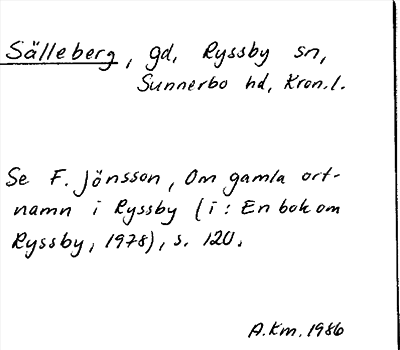 Sälleberg, gd, Ryssby sn,
Sunnerbo hd, Kron.l.
Se F. Jönsson, Om gamla ort-
namn i Ryssby (i: En bok om
Ryssby, 1978), s. 120.
A.Km. 1986